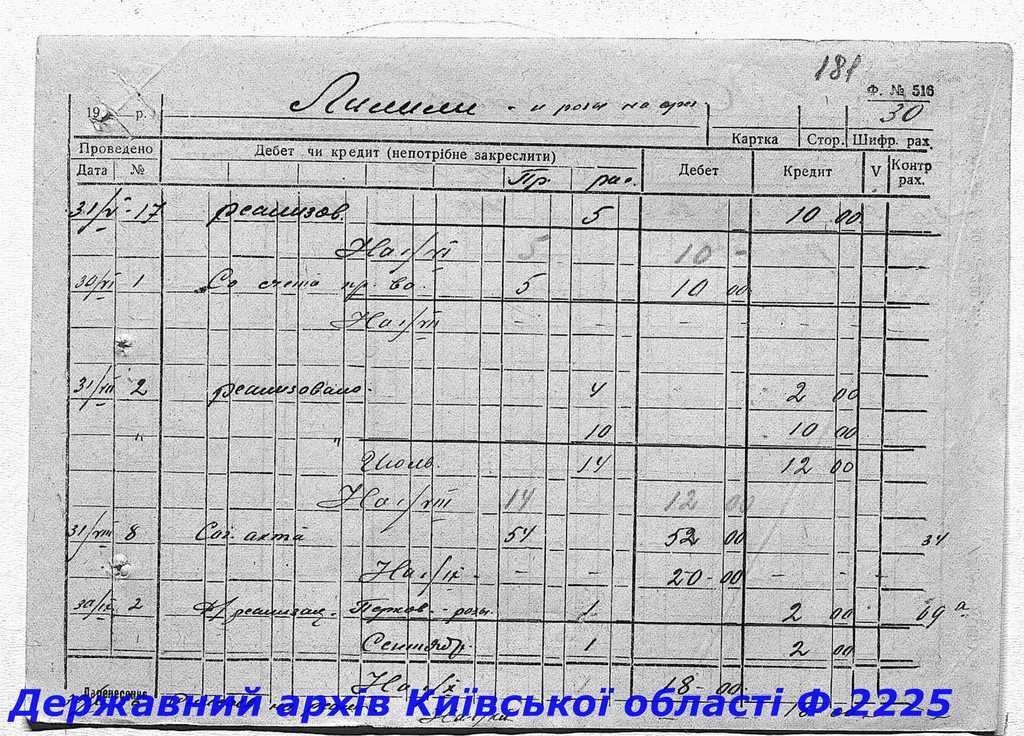 181
Ф. № 516
Лилии - и розы на
30
19 р.
Картка Стор. Шифр. рах.
Проведено Дебет чи кредит (непотрібне закреслити) Дебет Кредит V Контр рах.
Дата № Пр. рас.
31/V - 17 реализов. 5 10 00
На 1/VI 5 10 -
30/VI 1 Со счета пр. во. 5 10 00
На 1/VII - - - -
31/VII 2 реализовано. 4 2 00
" " 10 10 00
Июль. 14 12 00
На 1/VIII 14 12 00
31/VIII 8 Сог. акта 54 52 00 34
На 1/IX - - - 20 - 00 - - -
30/IX 2 реализац. - розы. 1 2 00 69 а
Сентябр. 1 2 00
На 1/X 18 00
Перенесення
Державний архів Київської області Ф.2225